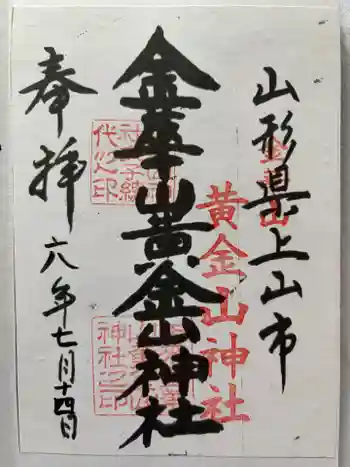 山形県上山市
金華山
黄金山神社
金華山黄金山神社
奉拝
六年七月十四日
神社之印